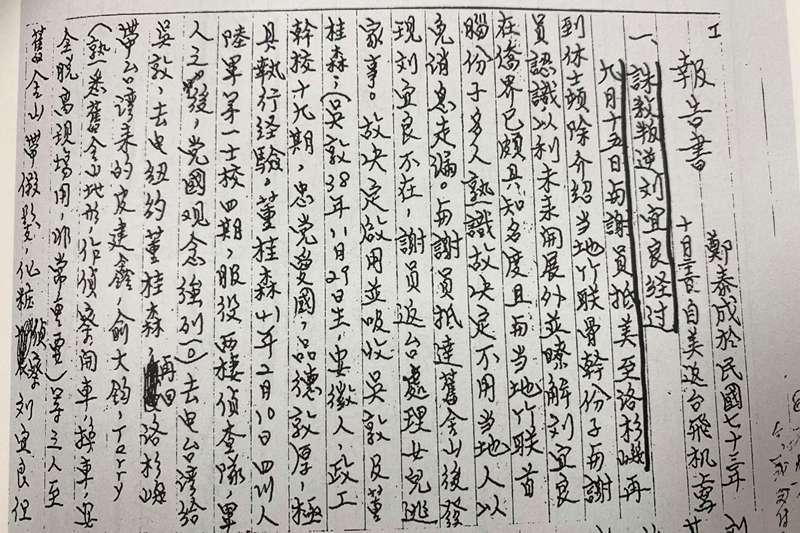 I
報告書 鄭泰成於民國七十三年
自美返台飛机上
一、誅教叛逆刘宜良经过
九月十五日與謝員抵美至洛杉磯再
到休士頓除介紹当地竹联骨幹份子與謝
員認識以利未来開展外並暸解刘宜良
在僑界已頗具知名度且與当地竹联首
腦份子多人熟識故决定不用当地人以
免消息走漏。與謝員抵達舊金山後發
現刘宜良不在，謝員返台處理女兒逃
家事。故决定啟用並吸收吳敦及董
桂森；（吳敦38年11月29日生，安徽人，政工
幹校十九期，忠党愛國，品德敦厚，極
具執行经驗，董桂森41年2月10日四川人
陸軍第一士校四期，服役两棲偵查隊，單
人之發，党國观念強烈）。去电台湾给
吳敦，去电纽约董桂森，再回洛杉磯
帶台湾来的皮建鑫，俞大鈞，Terry
（熟悉舊金山地形，作偵察開車换車，安
全脫离現場用，非常重要）等三人至
舊金山帶假髮，化粧偵察刘宜良住